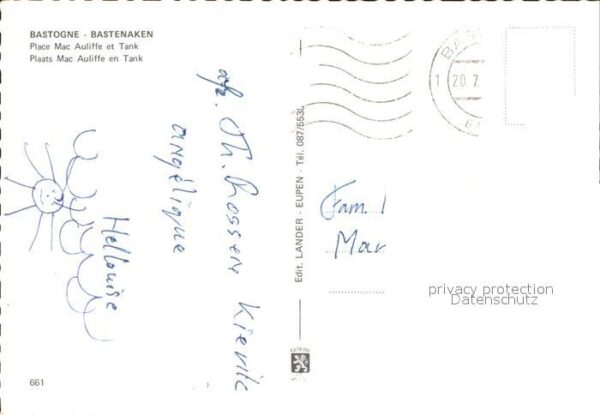 BASTOGNE - BASTENAKEN
Place Mac Auliffe et Tank
Plaats Mac Auliffe en Tank
afz. Th. Rossen Kievitz
Angélique
Hellouise
Edit. LANDER - EUPEN - Tél. 087/5530
BAS
1 20.7.
Fam.
Mar
privacy protection
Datenschutz
661